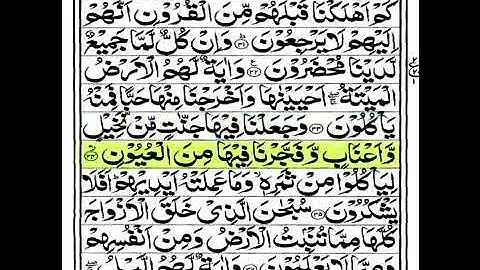 كَمْ اَهْلَكْنَا قَبْلَهُمْ مِّنَ الْقُرُوْنِ اَنَّهُمْ
اِلَيْهِمْ لَا يَرْجِعُوْنَ ؕ۳۱ وَاِنْ كُلٌّ لَّمَّا جَمِيْعٌ
لَّدَيْنَا مُحْضَرُوْنَ ۳۲ وَاٰيَةٌ لَّهُمُ الْاَرْضُ
الْمَيْتَةُ ۖۚ اَحْيَيْنٰهَا وَاَخْرَجْنَا مِنْهَا حَبًّا فَمِنْهُ
يَاْكُلُوْنَ ۳۳ وَجَعَلْنَا فِيْهَا جَنّٰتٍ مِّنْ نَّخِيْلٍ
وَّاَعْنَابٍ وَّفَجَّرْنَا فِيْهَا مِنَ الْعُيُوْنِ ۙ۳۴
لِيَاْكُلُوْا مِنْ ثَمَرِهٖ ۙ وَمَا عَمِلَتْهُ اَيْدِيْهِمْ ؕ اَفَلَا
يَشْكُرُوْنَ ۳۵ سُبْحٰنَ الَّذِيْ خَلَقَ الْاَزْوَاجَ
كُلَّهَا مِمَّا تُنْۢبِتُ الْاَرْضُ وَمِنْ اَنْفُسِهِمْ
وَمِمَّا لَا يَعْلَمُوْنَ ۳۶ وَاٰيَةٌ لَّهُمُ الَّيْلُ